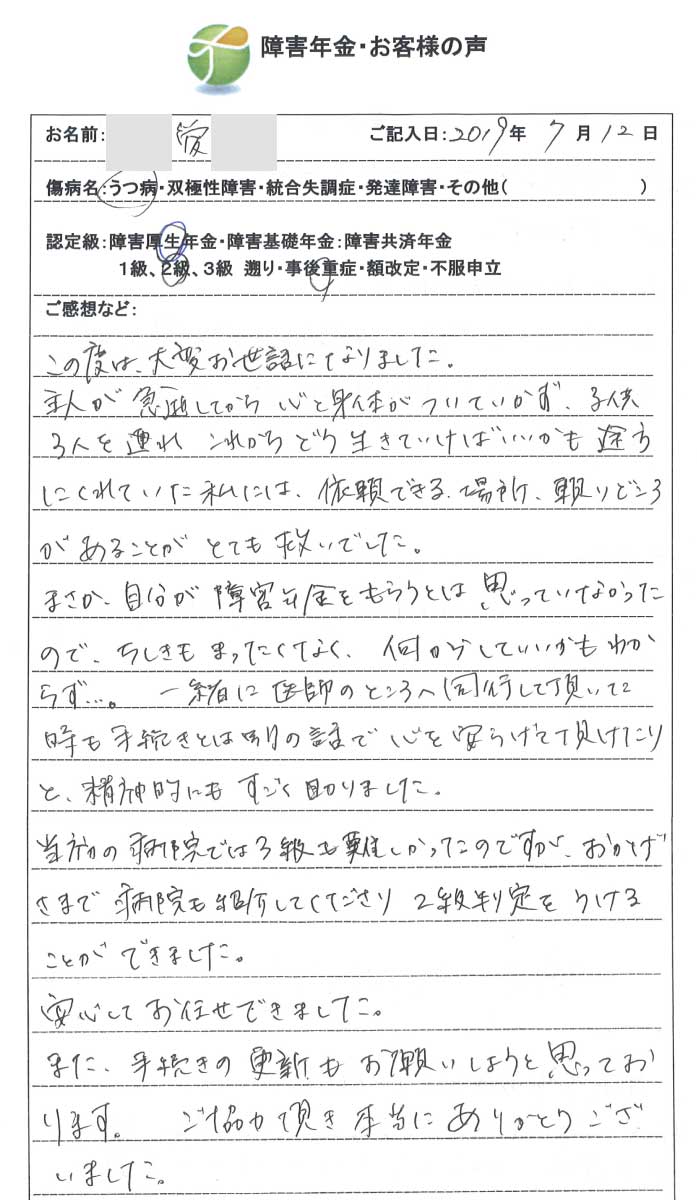 障害年金・お客様の声
お名前: 愛 ご記入日:2019年 7月12日
傷病名:うつ病・双極性障害・統合失調症・発達障害・その他( )
認定級:障害厚生年金・障害基礎年金:障害共済年金
1級、2級、3級 遡り・事後重症・額改定・不服申立
ご感想など:
この度は、大変お世話になりました。
主人が急逝してから心と身体がついていかず、子供
3人を連れこれからどう生きていけばいいかも途方
にくれていた私には、依頼できる場所、頼りどころ
があることがとても救いでした。
まさか、自分が障害年金をもらうとは思っていなかった
ので、ちしきもまったくなく、何からしていいかもわか
らず…。一緒に医師のところへ同行して頂いた
時も手続きとは別の話で心を安らげて頂けたり
と、精神的にもすごく助りました。
当初の病院では3級も難しかったのですが、おかげ
さまで病院も紹介してくださり2級判定をうける
ことができました。
安心してお任せできました。
また、手続きの更新もお願いしようと思ってお
ります。ご協力頂き本当にありがとうござ
いました。